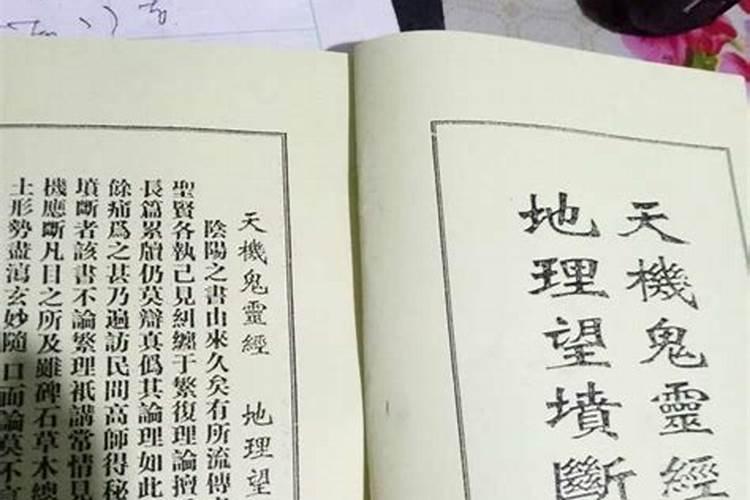 天機鬼靈經
地理望墳斷
天機鬼靈經 地理望
陰陽之書由來久矣有所流傳
聖賢各執己見糾纏于繁復理論擅
長篇累牘仍莫辯真僞其論理如此
餘痛爲之甚乃遍訪民間高師得秘
墳斷者該書不論繁理祇講常情見
機應斷凡目之所及雖碑石草木總
土形勢盡瀉玄妙隨口而論莫不